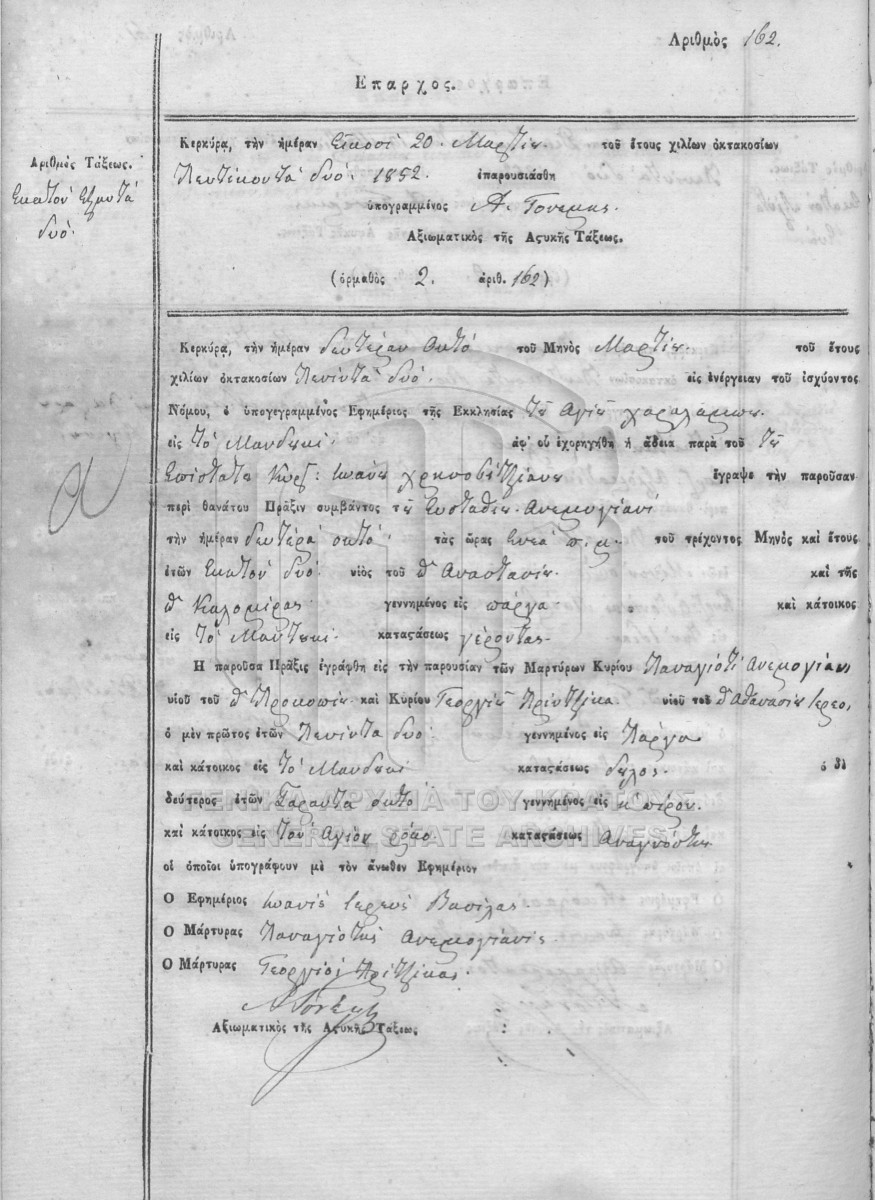 Αριθμὸς 162.
Επαρχος.
Αριθμὸς Τάξεως.
Εκατόν Εξηντά
δυό
Κερκύρα, τὴν ἡμέραν Είκοσι 20. Μαρτίου τοῦ ἔτους χιλίων ὀκτακοσίων
Πεντίκοντα δυό. 1852. ἐπαρουσιάσθη
ὑπογραμμένος Α. Γονεμης.
Αξιωματικὸς τῆς Αϛυκῆς Τάξεως.
(ὁρμαθὸς 2. ἀριθ. 162)
Κερκύρα, τὴν ἡμέραν δευτέραν οκτό τοῦ Μηνὸς Μαρτίου. τοῦ ἔτους
χιλίων ὀκτακοσίων πενίντα δυό. εἰς ἐνέργειαν τοῦ ἰσχύοντος
Νόμου, ὁ ὑπογεγραμμένος Εφημέριος τῆς Εκκλησίας του Αγίου χαραλάμπου.
εἰς τό Μανδυκι. ἀφ' οὗ ἐχορηγήθη ἡ ἄδεια παρὰ τοῦ του
Επιστάτου Ιωάνου ἔγραψε τὴν παροῦσαν
περὶ θανάτου Πρᾶξιν συμβάντος του Ευσταθίου Ανεμογιανι
τὴν ἡμέραν δευτέρα οκτό. τὰς ὥρας Ενεά π.μ. τοῦ τρέχοντος Μηνὸς καὶ ἔτους
ἐτῶν Εκατόν δυό. υἱὸς τοῦ Αναστασίου καὶ τῆς
Καλομίρας γεννημένος εἰς πάργα. καὶ κάτοικος
εἰς τό Μαντυκι. καταϛάσεως γέροντας.
Η παροῦσα Πρᾶξις ἐγράφθη εἰς τὴν παρουσίαν τῶν Μαρτύρων Κυρίου Παναγιότι Ανεμογιάνι
υἱοῦ τοῦ Προκοπίου καὶ Κυρίου Γεοργίου Πρίντζικα. υἱοῦ τοῦ Αθανασίου Ιερεο,
ὁ μὲν πρῶτος ἐτῶν πενίντα δυό. γεννημένος εἰς Πάργα
καὶ κάτοικος εἰς τό Μανδυκι καταϛάσεως ὁ δὲ
δεύτερος ἐτῶν Σαραντα οκτό γεννημένος εἰς
καὶ κάτοικος εἰς τον Αγιον καταϛάσεως Αναγνόστου
οἱ ὁποῖοι ὑπογράφουν μὲ τὸν ἄνωθεν Εφημέριον
Ο Εφημέριος Ιωανις Ιερευς Βασιλας.
Ο Μάρτυρας Παναγιοτις Ανεμογιανις.
Ο Μάρτυρας Γεοργιος Πριτζικας.
Α Γονέμης
Αξιωματικὸς τῆς Αϛυκῆς Τάξεως
ΓΕΝΙΚΑ ΑΡΧΕΙΑ ΤΟΥ ΚΡΑΤΟΥΣ
GENERAL STATE ARCHIVES